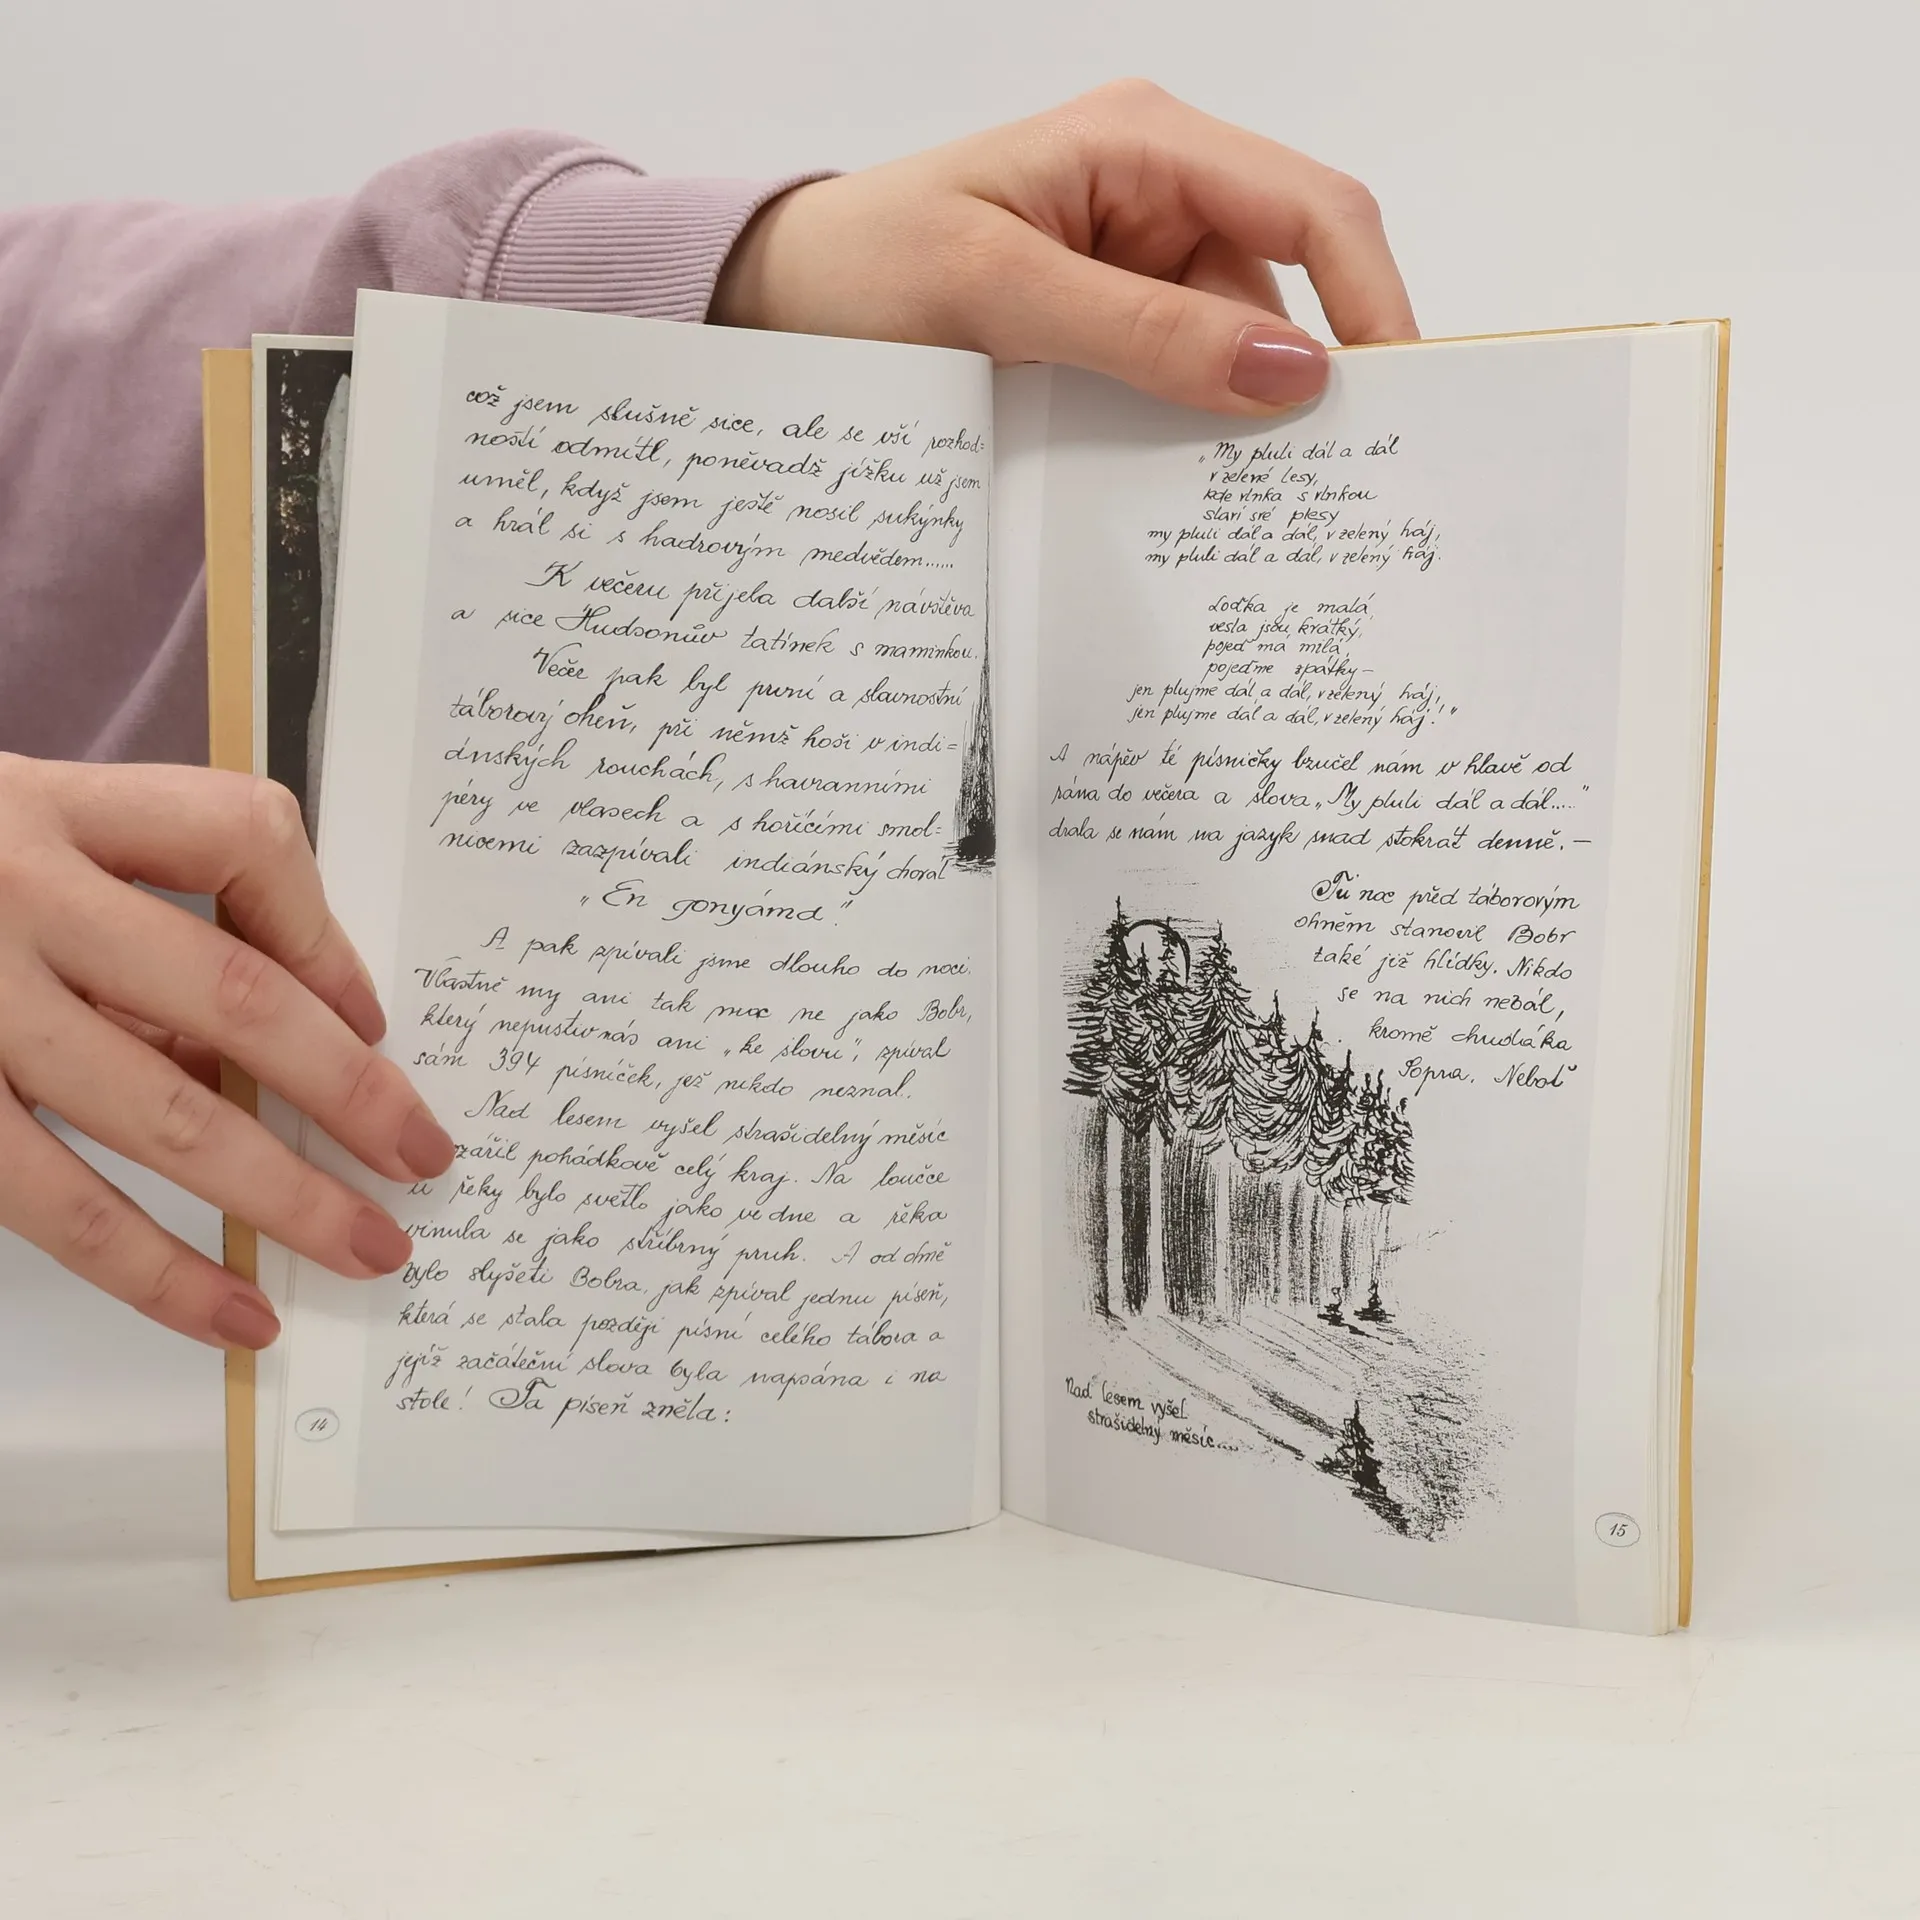 což jsem slušně sice, ale se vší rozhod=
ností odmítl, poněvadž jížku už jsem
uměl, když jsem ještě nosil sukýnky
a hrál si s hadrovým medvědem......
K večeru přijela další návštěva
a sice Hudsonův tatínek s maminkou.
Večer pak byl první a slavnostní
táborový oheň, při němž hoši v indi=
ánských rouchách, s havranními
péry ve vlasech a s hořícími smol=
nicemi zazpívali indiánský chorál
„En gonyámá“
A pak zpívali jsme dlouho do noci.
Vlastně my ani tak moc ne jako Bobr,
který nepustiv nás ani „ke slovu“, zpíval
sám 394 písniček, jež nikdo neznal.
Nad lesem vyšel strašidelný měsíc
zářil pohádkově celý kraj. Na loučce
u řeky bylo světlo jako ve dne a řeka
vinula se jako stříbrný pruh. A od ohně
bylo slyšeti Bobra, jak zpíval jednu píseň,
která se stala později písní celého tábora a
jejíž začáteční slova byla napsána i na
stole! Ta píseň zněla:
14
„My pluli dál a dál
v zelené lesy,
kde vlnka s vlnkou
slaví své plesy
my pluli dál a dál, v zelený háj,
my pluli dál a dál, v zelený háj.
Loďka je malá,
vesla jsou krátký,
pojeď má milá,
pojeďme zpátky –
jen plujme dál a dál, v zelený háj,
jen plujme dál a dál, v zelený háj!“
A nápěv té písničky bzučel nám v hlavě od
rána do večera a slova „My pluli dál a dál.....“
drala se nám na jazyk snad stokrát denně. –
Tu noc před táborovým
ohněm stanovil Bobr
také již hlídky. Nikdo
se na nich nebál,
kromě chudáka
Sopra. Neboť
Nad lesem vyšel
strašidelný měsíc....
15